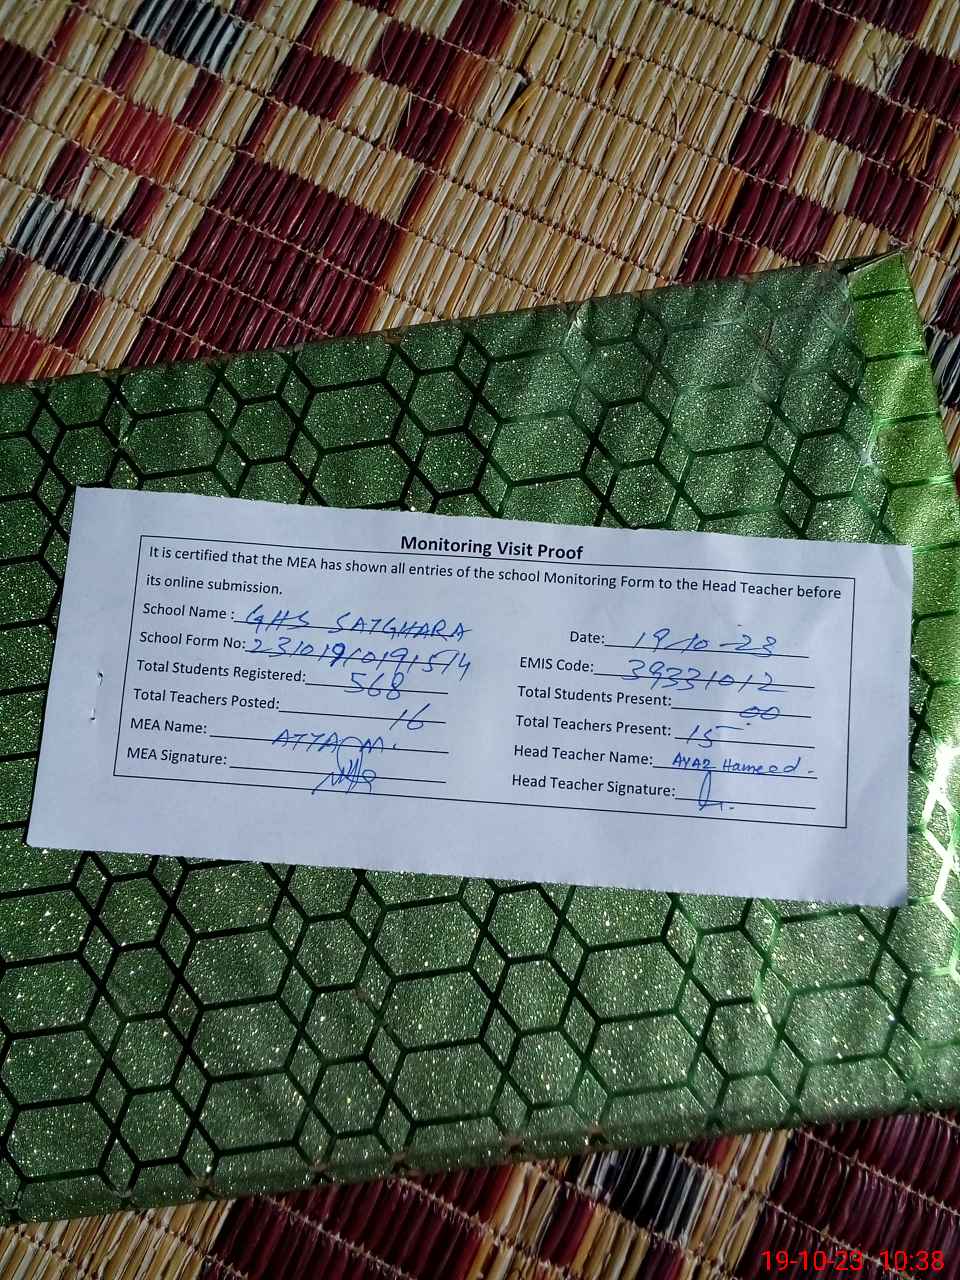 Monitoring Visit Proof
It is certified that the MEA has shown all entries of the school Monitoring Form to the Head Teacher before
its online submission.
School Name : GHS SATGHARA
Date: 19-10-23
School Form No: 23101910191514
EMIS Code: 39331012
Total Students Registered: 568
Total Students Present: 00
Total Teachers Posted: 16
Total Teachers Present: 15
MEA Name: ATTA M.
Head Teacher Name: AYAZ Hameed.
MEA Signature:
Head Teacher Signature:
19-10-23 10:38